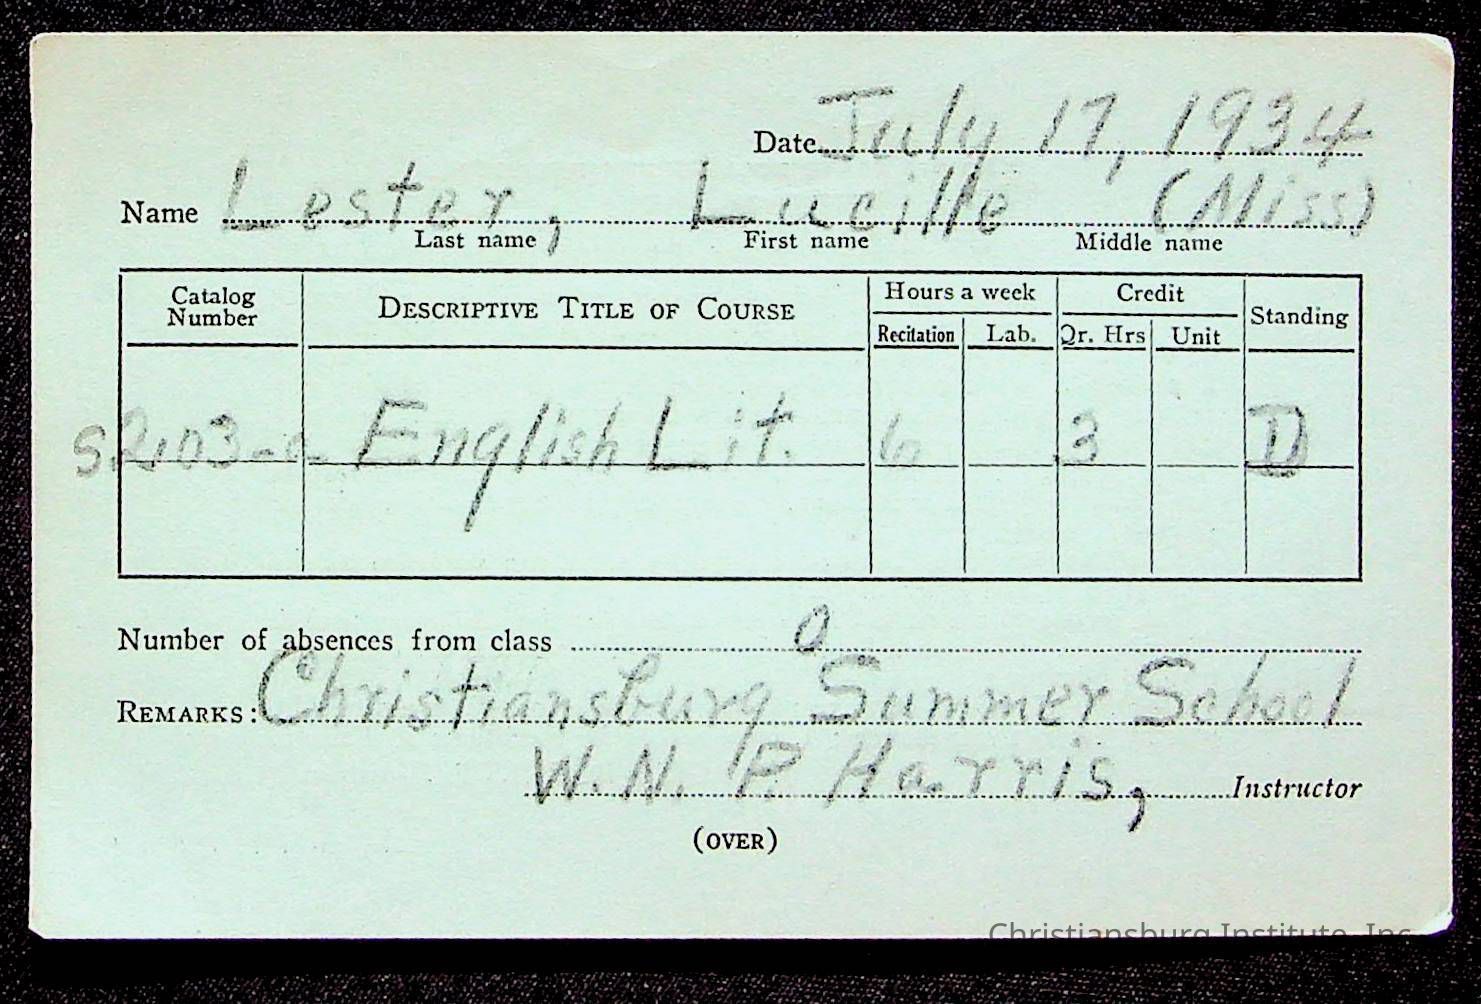 Date July 17, 1934
Name Lester, Lucille (Miss)
Last name First name Middle name
Catalog Number DESCRIPTIVE TITLE OF COURSE Hours a week Credit Standing
Recitation Lab. Qr. Hrs Unit
English Lit. 6 3 D
Number of absences from class 0
REMARKS: Christiansburg Summer School
W. N. P. Harris, Instructor
(OVER)
Christiansburg Institute, Inc.